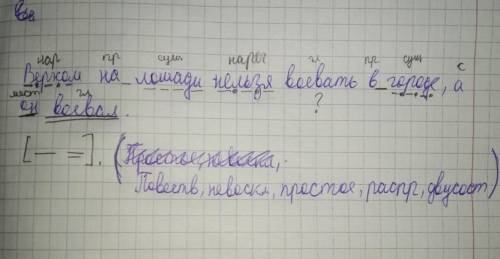 нар пр сущ нареч гл пр сущ с
Верхом на лошади нельзя воевать в городе, а
мест гл
он воевал. ?
[— =]. (
Повеств, невоскл, простое, распр, двусост)